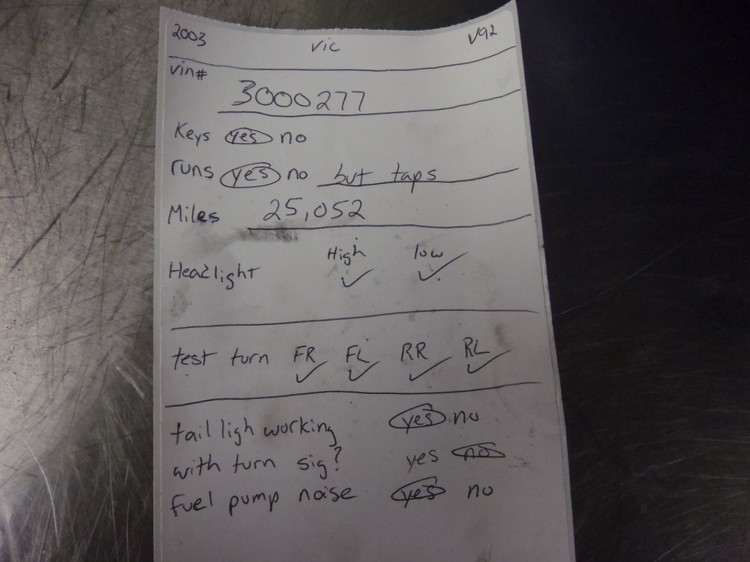 2003 vic V92
vin# 3000277
Keys yes no
runs yes no but taps
Miles 25,052
High low
Headlight
test turn FR FL RR RL
tail ligh working yes no
with turn sig? yes no
fuel pump noise yes no